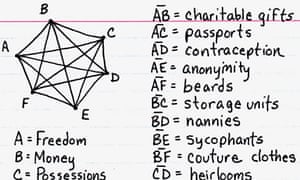 B
C
A
D
F
E
A = Freedom
B = Money
C = Possessions
AB = charitable gifts
AC = passports
AD = contraception
AE = anonymity
AF = beards
BC = storage units
BD = nannies
BE = sycophants
BF = couture clothes
CD = heirlooms